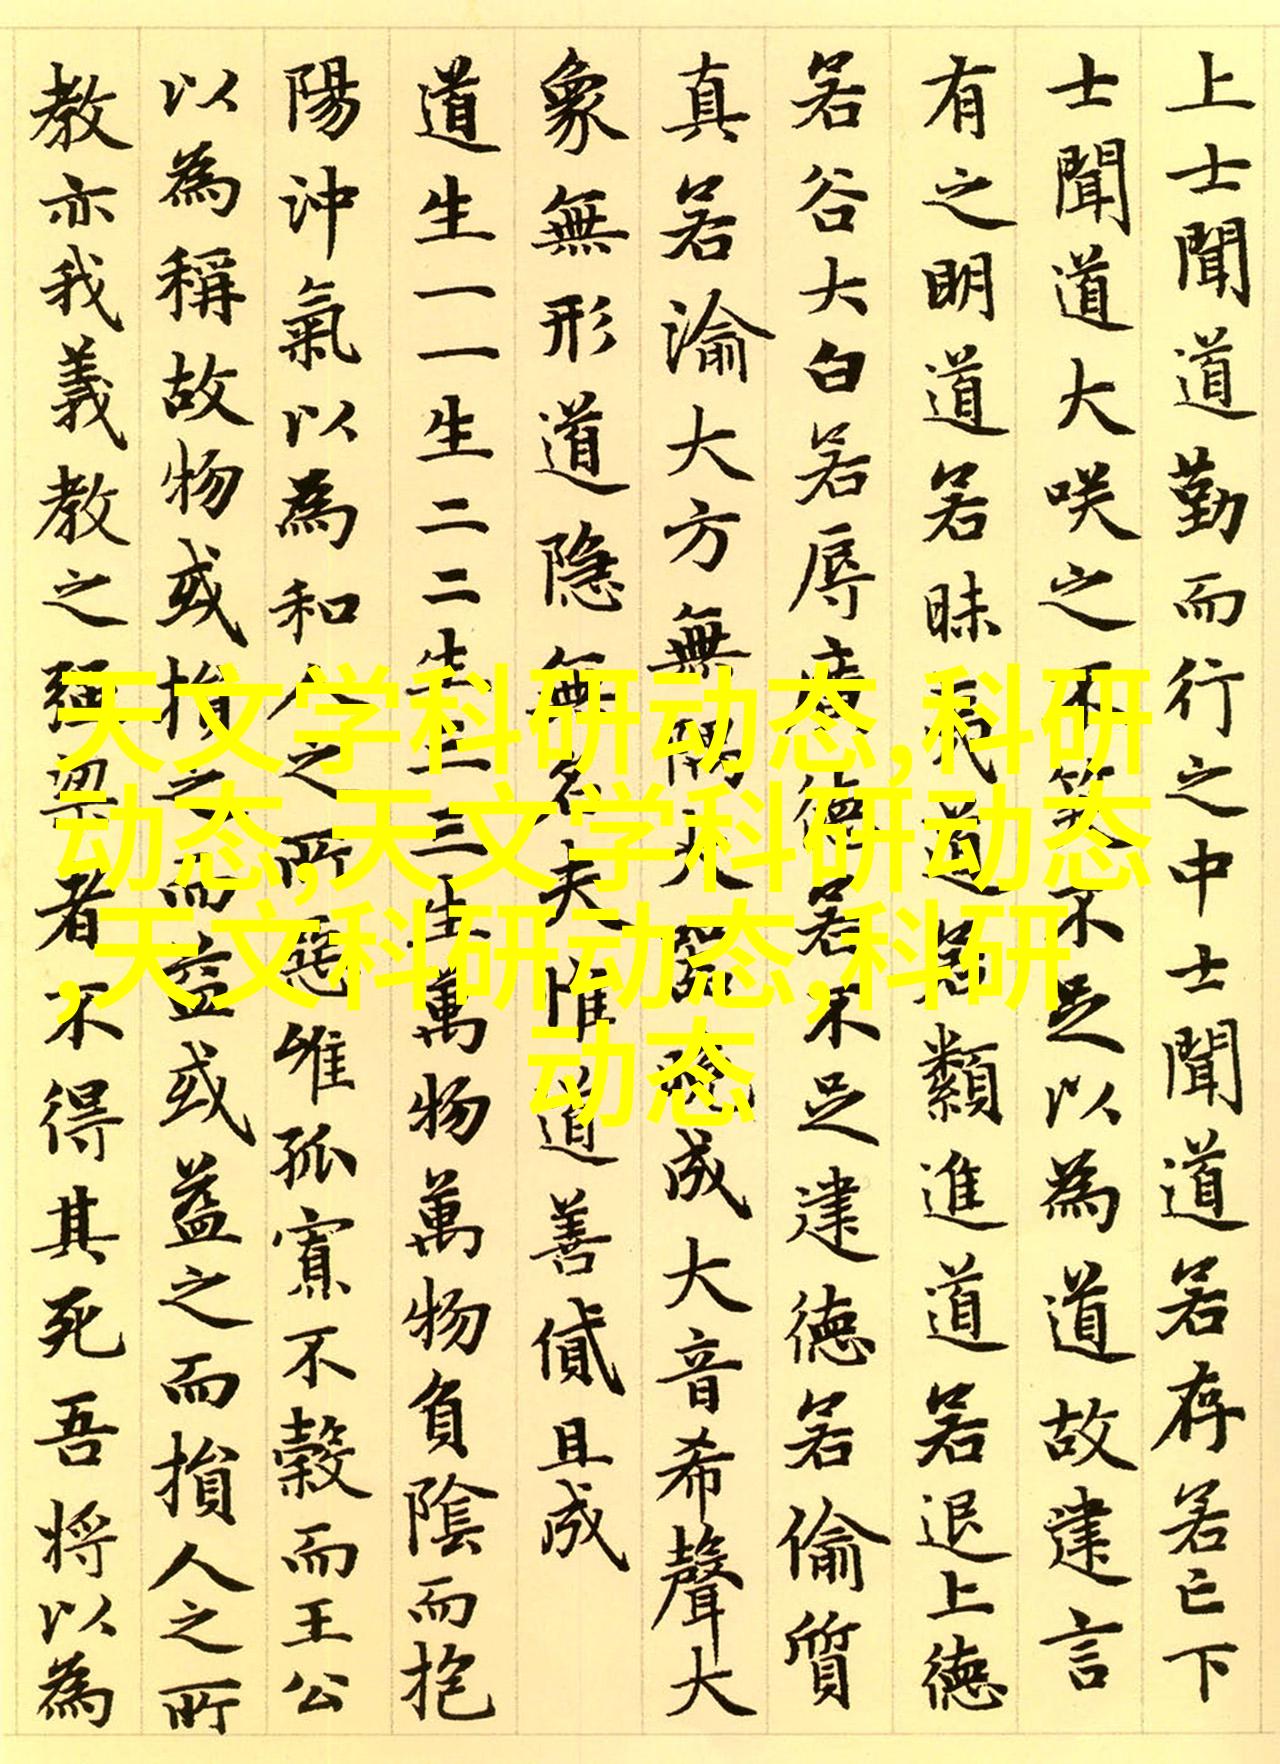 上士聞道勤而行之中士聞道若存若亡下
士聞道大咲之不笑不足以為道故建言
有之明道若昧夷道若類進道若退上德
若谷大白若辱廣德若不足建德若偷質
真若渝大方無隅大器晚成大音希聲大
象無形道隐無名夫惟道善貸且成
道生一一生二二生三三生萬物萬物負陰而抱
陽沖氣以為和人之所惡唯孤寡不穀而王公
以為稱故物或損之而益或益之而損人之所
教亦我義教之强梁者不得其死吾將以為
天文学科研动态,科研
动态,天文学科研动态
,天文科研动态,科研
动态